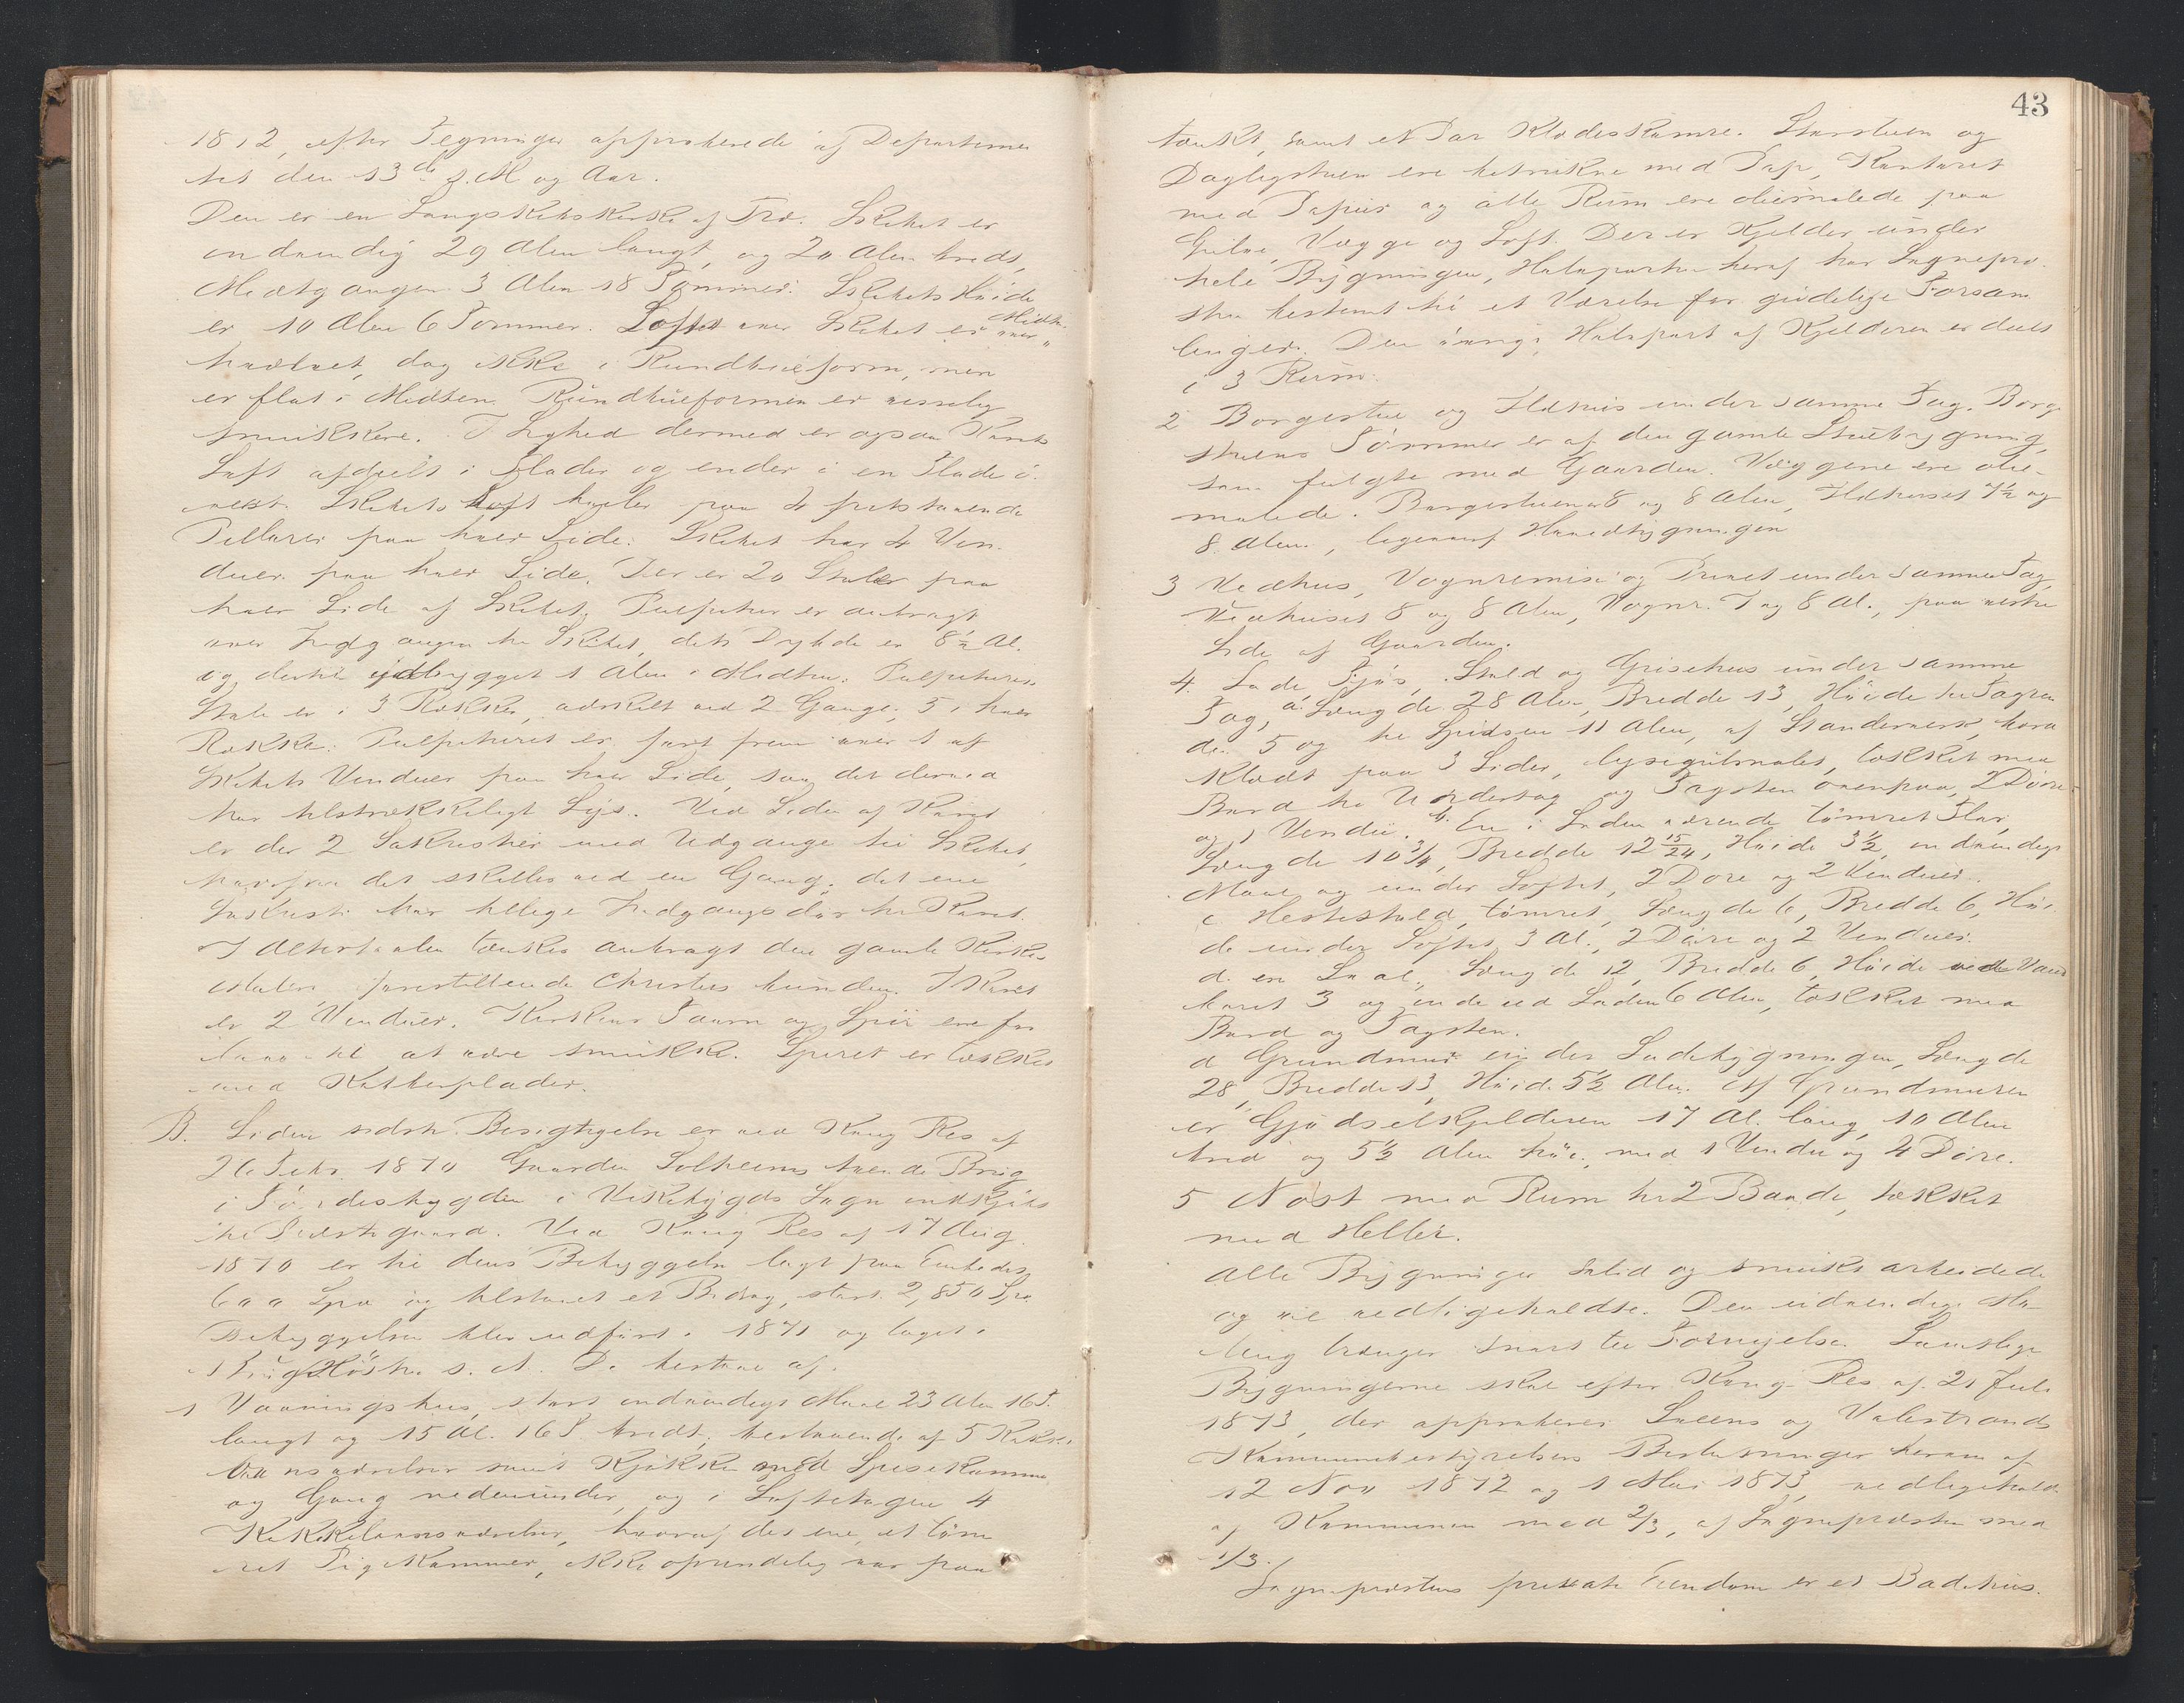 1872, efter Tegninger approberede af Departemen
tet den 13de s. M og Aar.
Den er en Langskibskirke af Træ. Skibet er
indvendig 29 Alen langt, og 20 Alen bredt,
Midtgangen 3 Alen 18 Tommer. Skibets Høide
er 10 Alen 6 Tommer. Loftet over Skibet er
hvælvet, dog ikke i Rundbueform, men
er flat i Midten. Rundbueformen er visselig
smukkere. I Lighed dermed er ogsaa Korets
Loft afdeelt i Flader og ender i en Flade ø-
verst. Skibets Loft hviler paa 4 fritstaaende
Pillarer paa hver Side. Skibet har 4 Vin-
duer paa hver Side. Der er 20 Stoler paa
hver Side af Skibet. Pulpitur er anbragt
over Indgangen til Skibet, dets Dybde er 8½ Al.
og dertil udbygget 1 Alen i Midten. Pulpiturets
Stole er i 3 Rækker, adskilt ved 2 Gange, 5 i hver
Række. Pulpituret er ført frem over 1 af
Skibets Vinduer paa hver Side, saa det derved
har tilstrækkeligt Lys. Ved Siden af Koret
er der 2 Sakristier med Udgange til Skibet,
hvorfra det skilles ved en Gang; det ene
Sakristi har tillige Indgangsdør til Koret.
I Altertavlen tænkes anbragt den gamle Kirkes
Maleri forestillende Christus . I Koret
er 2 Vinduer. Kirkens Taarn og Spiir ere for
lave til at være smukke. Spiret er tækket
med Kobberplader.
B. Siden sidste Besigtigelse er ved Kong Res af
26 Febr. 1870 Gaarden Solheims tvende Brug
i Førdesbygden i Vikebygds Sogn indkjøbt
til Præstegaard. Ved Kong Res af 17 Aug
1870 er til dens Bebyggelse lagt paa Embedet
600 Spd og tilstaaet et Bidrag, stort 2,850 Spd
Bebyggelsen blev udført i 1871 og taget i
Brug Høsten s. A. De bestaae af:
1 Vaaningshus, stort indvendigt Maal 23 Alen 16 T.
langt og 15 Al. 16 T. bredt, bestaaende af 5 Kakkel
ovnsværelser samt Kjøkken med Spisekammer
og Gang nedenunder, og i Loftetagen 4
Kakkelovnsværelser, hvoraf det ene, et tøm
ret Pigekammer, ikke oprindelig var paa
43
tænkt, samt et Par Klædeskamre. Storstuen og
Dagligstuen ere betrukne med Pap, Kontoret
med Papiir og alle Rum ere oliemalede paa
Gulve, Vægge og Loft. Der er Kjelder under
hele Bygningen, Halvparten heraf har Sognepræ
sten bestemt til et Værelse for gudelige Forsam
linger. Den øvrige Halvpart af Kjelderen er deelt
i 3 Rum.
2 Borgestue og Ildhus under samme Tag. Borge
stuens Tømmer er af den gamle Stuebygning,
som fulgte med Gaarden. Væggene ere olie-
malede. Borgestuen 8 og 8 Alen, Ildhuset 7½ og
8 Alen, ligeoverf Hovedbygningen
3 Vedhus, Vognremise og Privet under samme Tag,
Vedhuset 8 og 8 Alen, Vognr. 7 og 8 Al., paa vestre
Side af Gaarden.
4. Lade, Fjøs, Stald og Grisehus under samme
Tag, a. Længde 28 Alen, Bredde 13, Høide til Tagren
den 5 og til Spidsen 11 Alen, af Standerværk, bord
klædt paa 3 Sider, lysegulmalet, tækket med
Bord til Undertag og Tagsten ovenpaa, 2 Døre
og 1 Vindue. b. En i Laden værende tømret Flor,
Længde 10¾, Bredde 12 15/24, Høide 3½, indvendigt
Maal og under Loftet, 2 Døre og 2 Vinduer.
c Hestestald, tømret, Længde 6, Bredde 6, Høi
de under Loftet 3 Al., 2 Døre og 2 Vinduer.
d. en Sval, Længde 12, Bredde 6, Høide ved Vand
bordet 3 og inde ved Laden 6 Alen, tækket med
Bord og Tagsten.
d Grundmur under Ladebygningen, Længde
28, Bredde 13, Høide 5½ Alen. Af Grundmuren
er Gjødselkjelderen 17 Al. lang, 10 Alen
bred og 5½ Alen høi, med 1 Vindue og 4 Døre.
5 Nøst med Rum til 2 Baade, tækket
med Heller.
Alle Bygninger solid og smukt arbeidede
og vel vedligeholdte. Den udvendige Ma-
ling trænger snart til Fornyelse. Samtlige
Bygningerne skal efter Kong Res af 21 Juli
1873, der approberer Sveens og Valestrands
Kommunebestyrelsers Beslutninger herom af
12 Nov 1872 og 1 Mai 1873, vedligeholdes
af Kommunen med 2/3, af Sognepræsten med
1/3.
Sognepræstens private Eiendom er et Badehus.